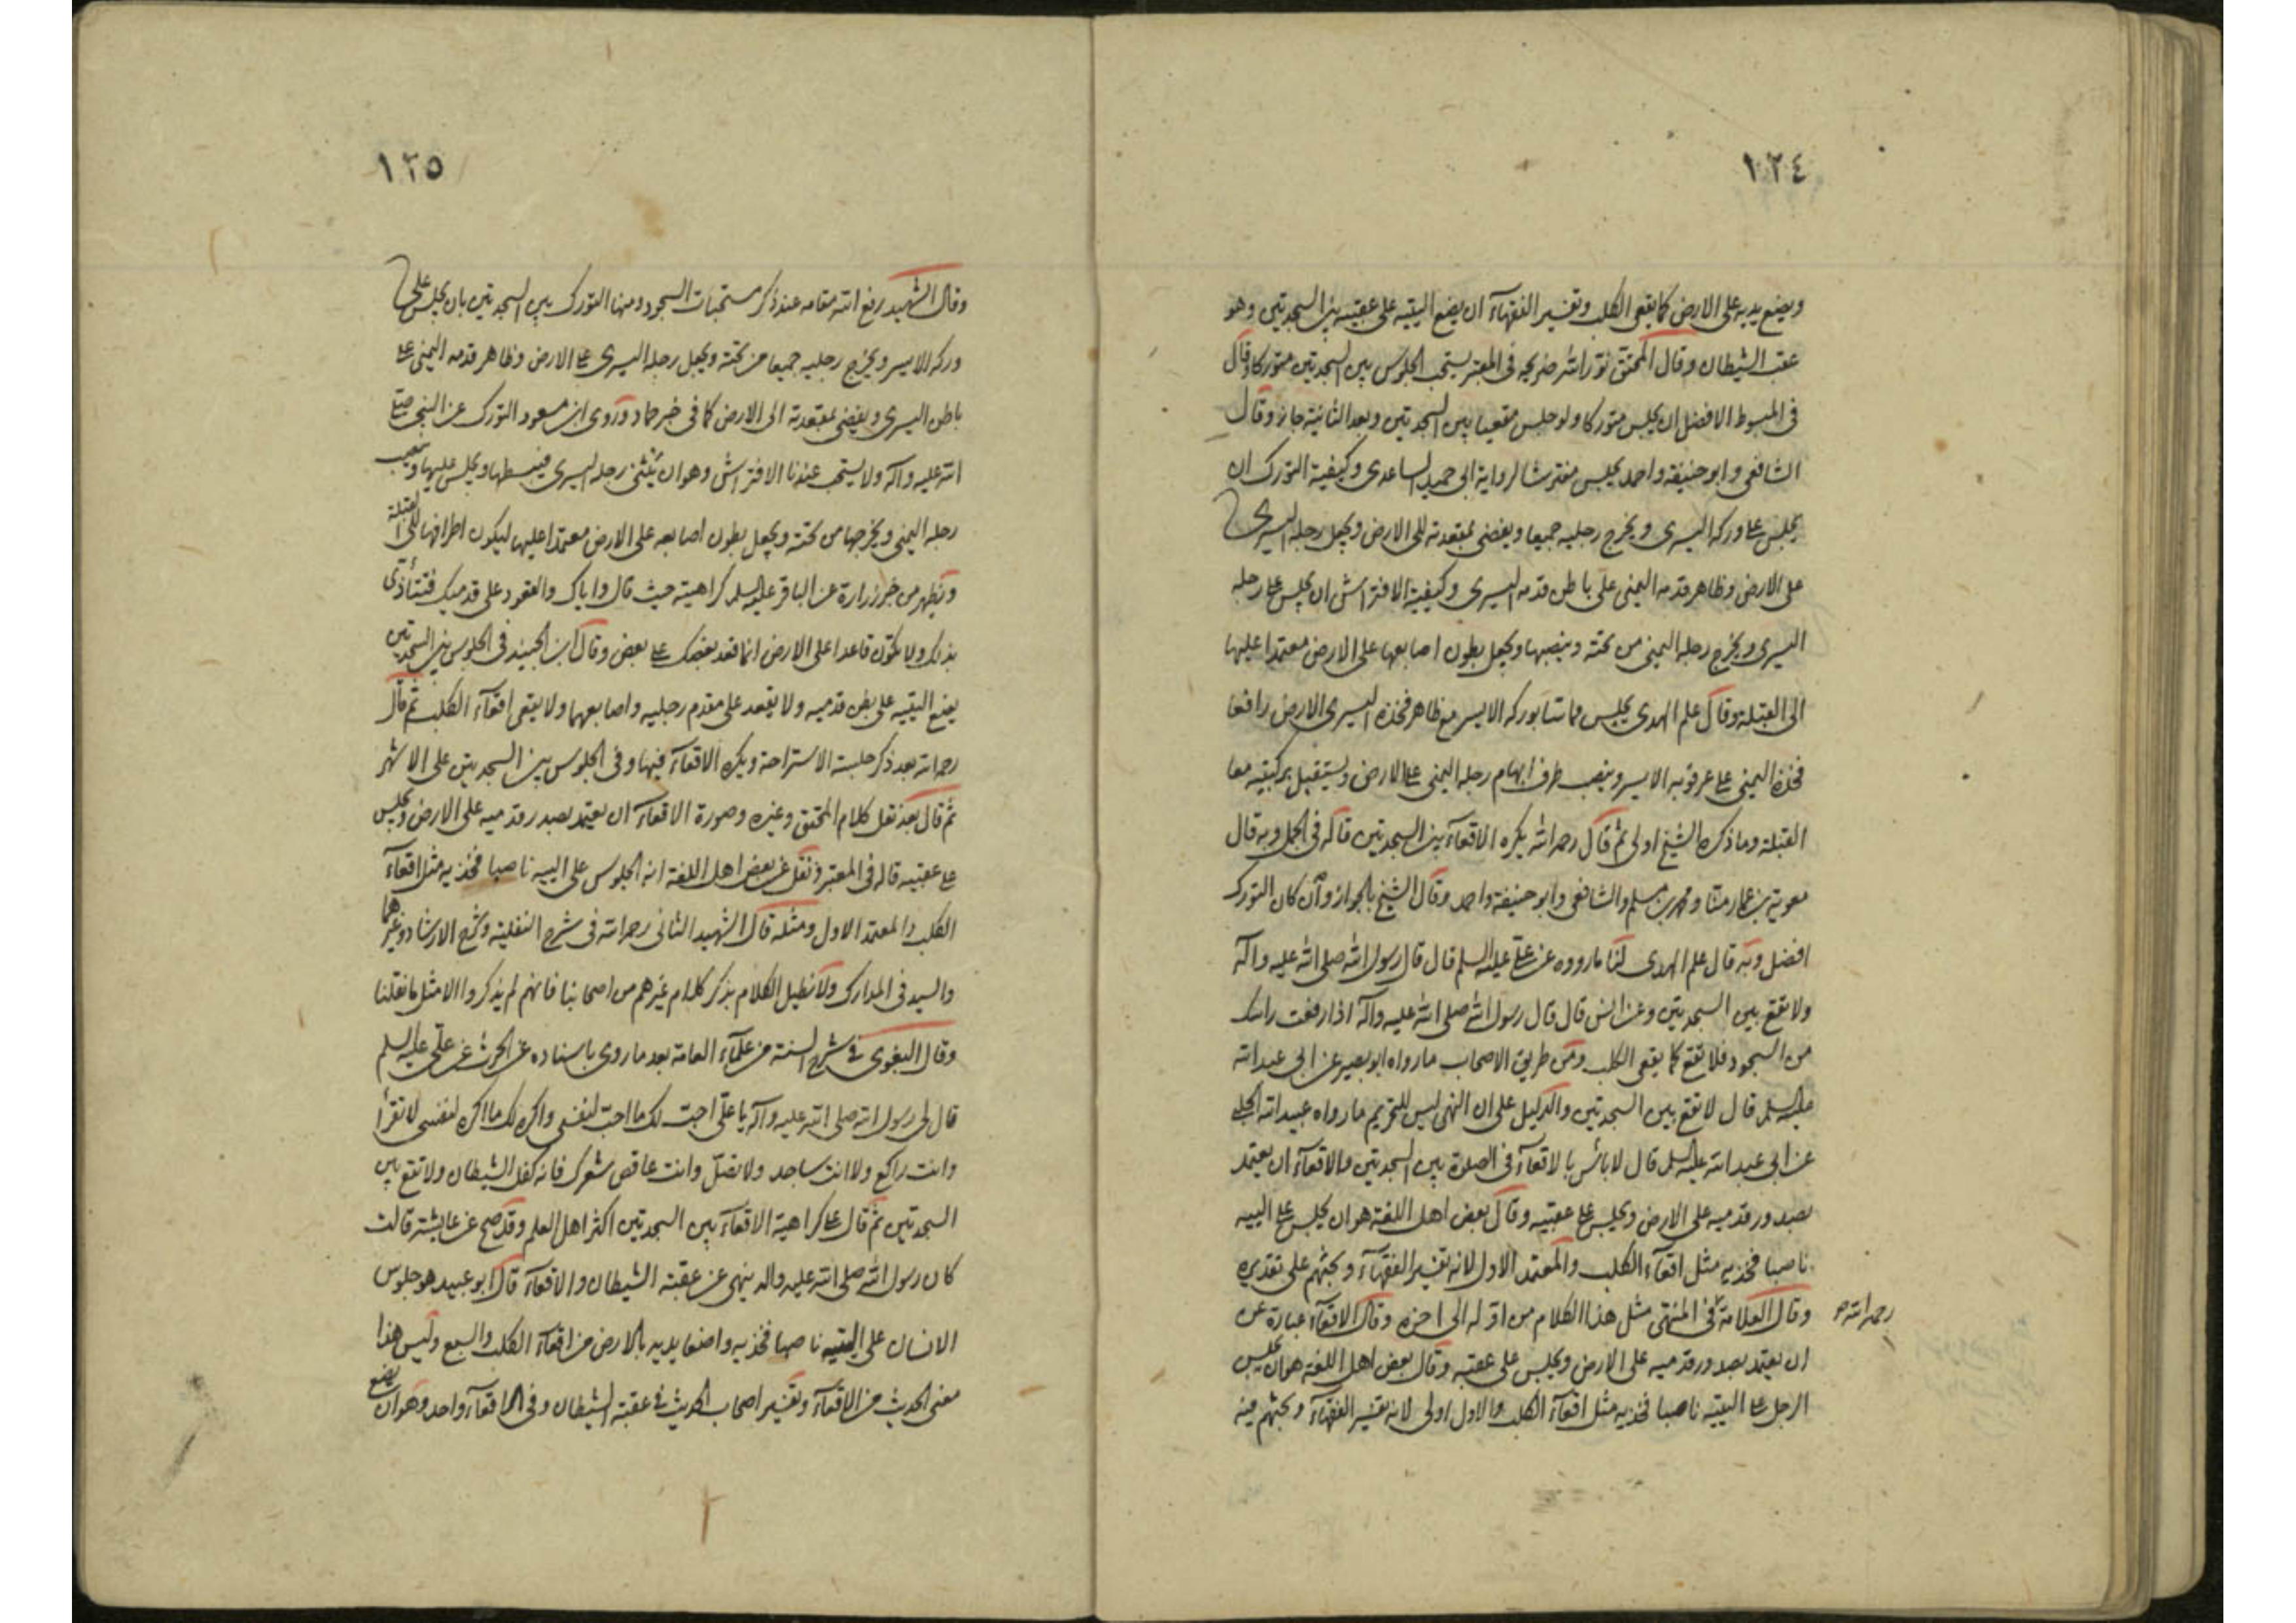 ١٢٤
ويضع يديه على الارض كما يقعى الكلب وتفسير الفقهاء ان يضع اليتيه على عقبيه بين السجدتين وهو
عقب الشيطان وقال المحقق نور الله ضريحه فى المعتبر يستحب الجلوس بين السجدتين متوركا وقال
فى المبسوط الافضل ان يجلس متوركا ولو جلس مقعيا بين السجدتين وبعد الثانية جاز وقال
الشافعى وابو حنيفة واحمد يجلس مفترشا لرواية ابى حميد الساعدى وكيفية التورك ان
يجلس على وركه اليسرى ويخرج رجليه جميعا ويفضى بمقعدته الى الارض ويجعل رجله اليسرى
على الارض وظاهر قدمه اليمنى على باطن قدمه اليسرى وكيفية الافتراش ان يجلس على رجله
اليسرى ويخرج رجله اليمنى من تحته وينصبها ويجعل بطون اصابعها على الارض معتمدا عليها
الى القبلة وقال علم الهدى يجلس مماسا بوركه الايسر مع ظاهر فخذه اليسرى الارض رافعا
فخذه اليمنى على عرقوبه الايسر وينصب طرف ابهام رجله اليمنى على الارض ويستقبل بركبتيه معا
القبلة وما ذكره الشيخ اولى ثم قال رحمه الله يكره الاقعاء بين السجدتين قاله فى الجمل وبه قال
معوية بن عمار منا ومحمد بن مسلم والشافعى وابو حنيفة واحمد وقال الشيخ بالجواز وان كان التورك
افضل وبه قال علم الهدى لنا ما رووه عن على عليه السلم قال قال رسول الله صلى الله عليه واله
ولا تقع بين السجدتين وعن انس قال قال رسول الله صلى الله عليه واله اذا رفعت راسك
من السجود فلا تقع كما يقعى الكلب ومن طريق الاصحاب ما رواه ابو بصير عن ابى عبد الله
عليه السلم قال لا تقع بين السجدتين والدليل على ان النهى ليس للتحريم ما رواه عبيد الله الحلبى
عن ابى عبد الله عليه السلم قال لا بأس بالاقعاء فى الصلوة بين السجدتين والاقعاء ان يعتمد
بصدور قدميه على الارض ويجلس على عقبيه وقال بعض اهل اللغة هو ان يجلس على اليتيه
ناصبا فخذيه مثل اقعاء الكلب والمعتمد الاول لانه تفسير الفقهاء وبحثهم على تقديره
وقال العلامة فى المنتهى مثل هذا الكلام من اوله الى اخره وقال الاقعاء عبارة عن
رحمه الله
ان يعتمد بصدور قدميه على الارض ويجلس على عقبيه وقال بعض اهل اللغة هو ان يجلس
الرجل على اليتيه ناصبا فخذيه مثل اقعاء الكلب والاول اولى لانه تفسير الفقهاء وبحثهم فيه
١٢٥
وقال الشهيد رفع الله مقامه عند ذكر مستحبات السجود ومنها التورك بين السجدتين بان يجلس على
وركه الايسر ويخرج رجليه جميعا من تحته ويجعل رجله اليسرى على الارض وظاهر قدمه اليمنى على
باطن اليسرى ويفضى بمقعدته الى الارض كما فى خبر حماد وروى ابن مسعود التورك عن النبى صلى
الله عليه واله ولا يستحب عندنا الافتراش وهو ان يثنى رجله اليسرى فيبسطها ويجلس عليها وينصب
رجله اليمنى ويخرجها من تحته ويجعل بطون اصابعه على الارض معتمدا عليها ليكون اطرافها الى القبلة
ويظهر من خبر زرارة عن الباقر عليه السلم كراهيته حيث قال واياك والقعود على قدميك فتتأذى
بذلك ولا تكون قاعدا على الارض انما قعد بعضك على بعض وقال ابن الجنيد فى الجلوس بين السجدتين
يضع اليتيه على بطن قدميه ولا يقعد على مقدم رجليه واصابعهما ولا يقعى اقعاء الكلب ثم قال
رحمه الله بعد ذكر جلسة الاستراحة ويكره الاقعاء فيها وفى الجلوس بين السجدتين على الاشهر
ثم قال بعد نقل كلام المحقق وغيره وصورة الاقعاء ان يعتمد بصدر قدميه على الارض ويجلس
على عقبيه قاله فى المعتبر ونقل عن بعض اهل اللغة انه الجلوس على اليتيه ناصبا فخذيه مثل اقعاء
الكلب والمعتمد الاول ومثله قال الشهيد الثانى رحمه الله فى شرح النفلية وشرح الارشاد وغيرهما
والسيد فى المدارك ولا نطيل الكلام بذكر كلام غيرهم من اصحابنا فانهم لم يذكروا الا مثل ما نقلنا
وقال البغوى فى شرح السنة من علماء العامة بعد ما روى باسناده عن الحرث عن على عليه السلم
قال لى رسول الله صلى الله عليه واله يا على احب لك ما احب لنفسى واكره لك ما اكره لنفسى لا تقرأ
وانت راكع ولا انت ساجد ولا تصل وانت عاقص شعرك فانه كفل الشيطان ولا تقع بين
السجدتين ثم قال على كراهية الاقعاء بين السجدتين اكثر اهل العلم وقد صح عن عايشة قالت
كان رسول الله صلى الله عليه واله ينهى عن عقبة الشيطان والاقعاء قال ابو عبيد هو جلوس
الانسان على اليتيه ناصبا فخذيه واضعا يديه بالارض من اقعاء الكلب والسبع وليس هذا
معنى الحديث من الاقعاء وتفسير اصحاب الحديث فى عقبة الشيطان وفى الاقعاء واحد وهو ان يضع